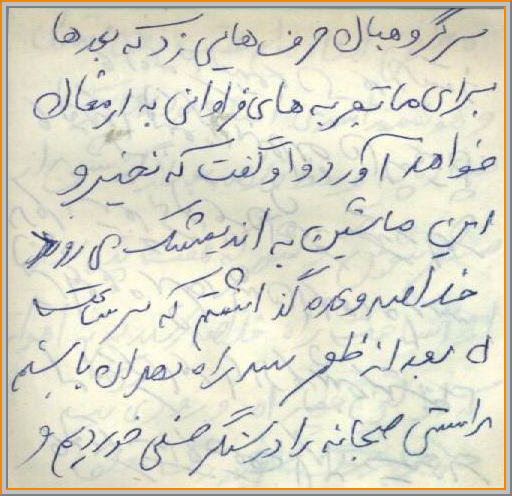 سرگروهبان حرف هایی زد که بعدها
برای ما تجربه های فراوانی به ارمغان
خواهد آورد و او گفت که نخیر و
این ماشین به اندیمشک می رود
خدا و وعده گذاشتم که سر ساعت
۵ بعد از ظهر سه راه تهران باشم
راستی صبحانه را در سنگر خوردیم و